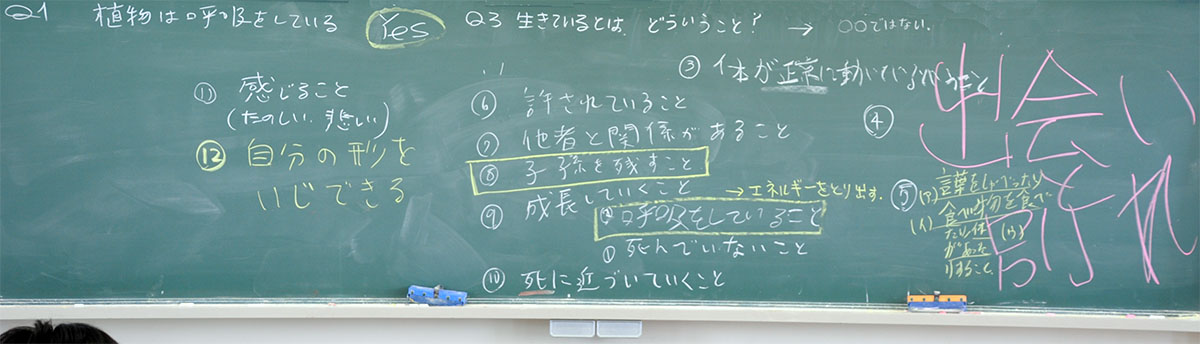 Q1 植物は呼吸をしている Yes
Q3 生きているとは、どういうこと? → ○○ではない。
⑪ 感じること
(たのしい、悲しい)
⑫ 自分の形を
いじできる
⑥ 許されていること
⑦ 他者と関係があること
⑧ 子孫を残すこと
⑨ 成長していくこと
→エネルギーをとり出す。
② 呼吸をしていること
① 死んでいないこと
⑩ 死に近づいていくこと
③ 体が正常に動いているということ
④ 出会い
と別れ
⑤ (ア) 言葉をしゃべったり
(イ) 食べ物を食べ
たり (ウ) 体
があった
りすること。